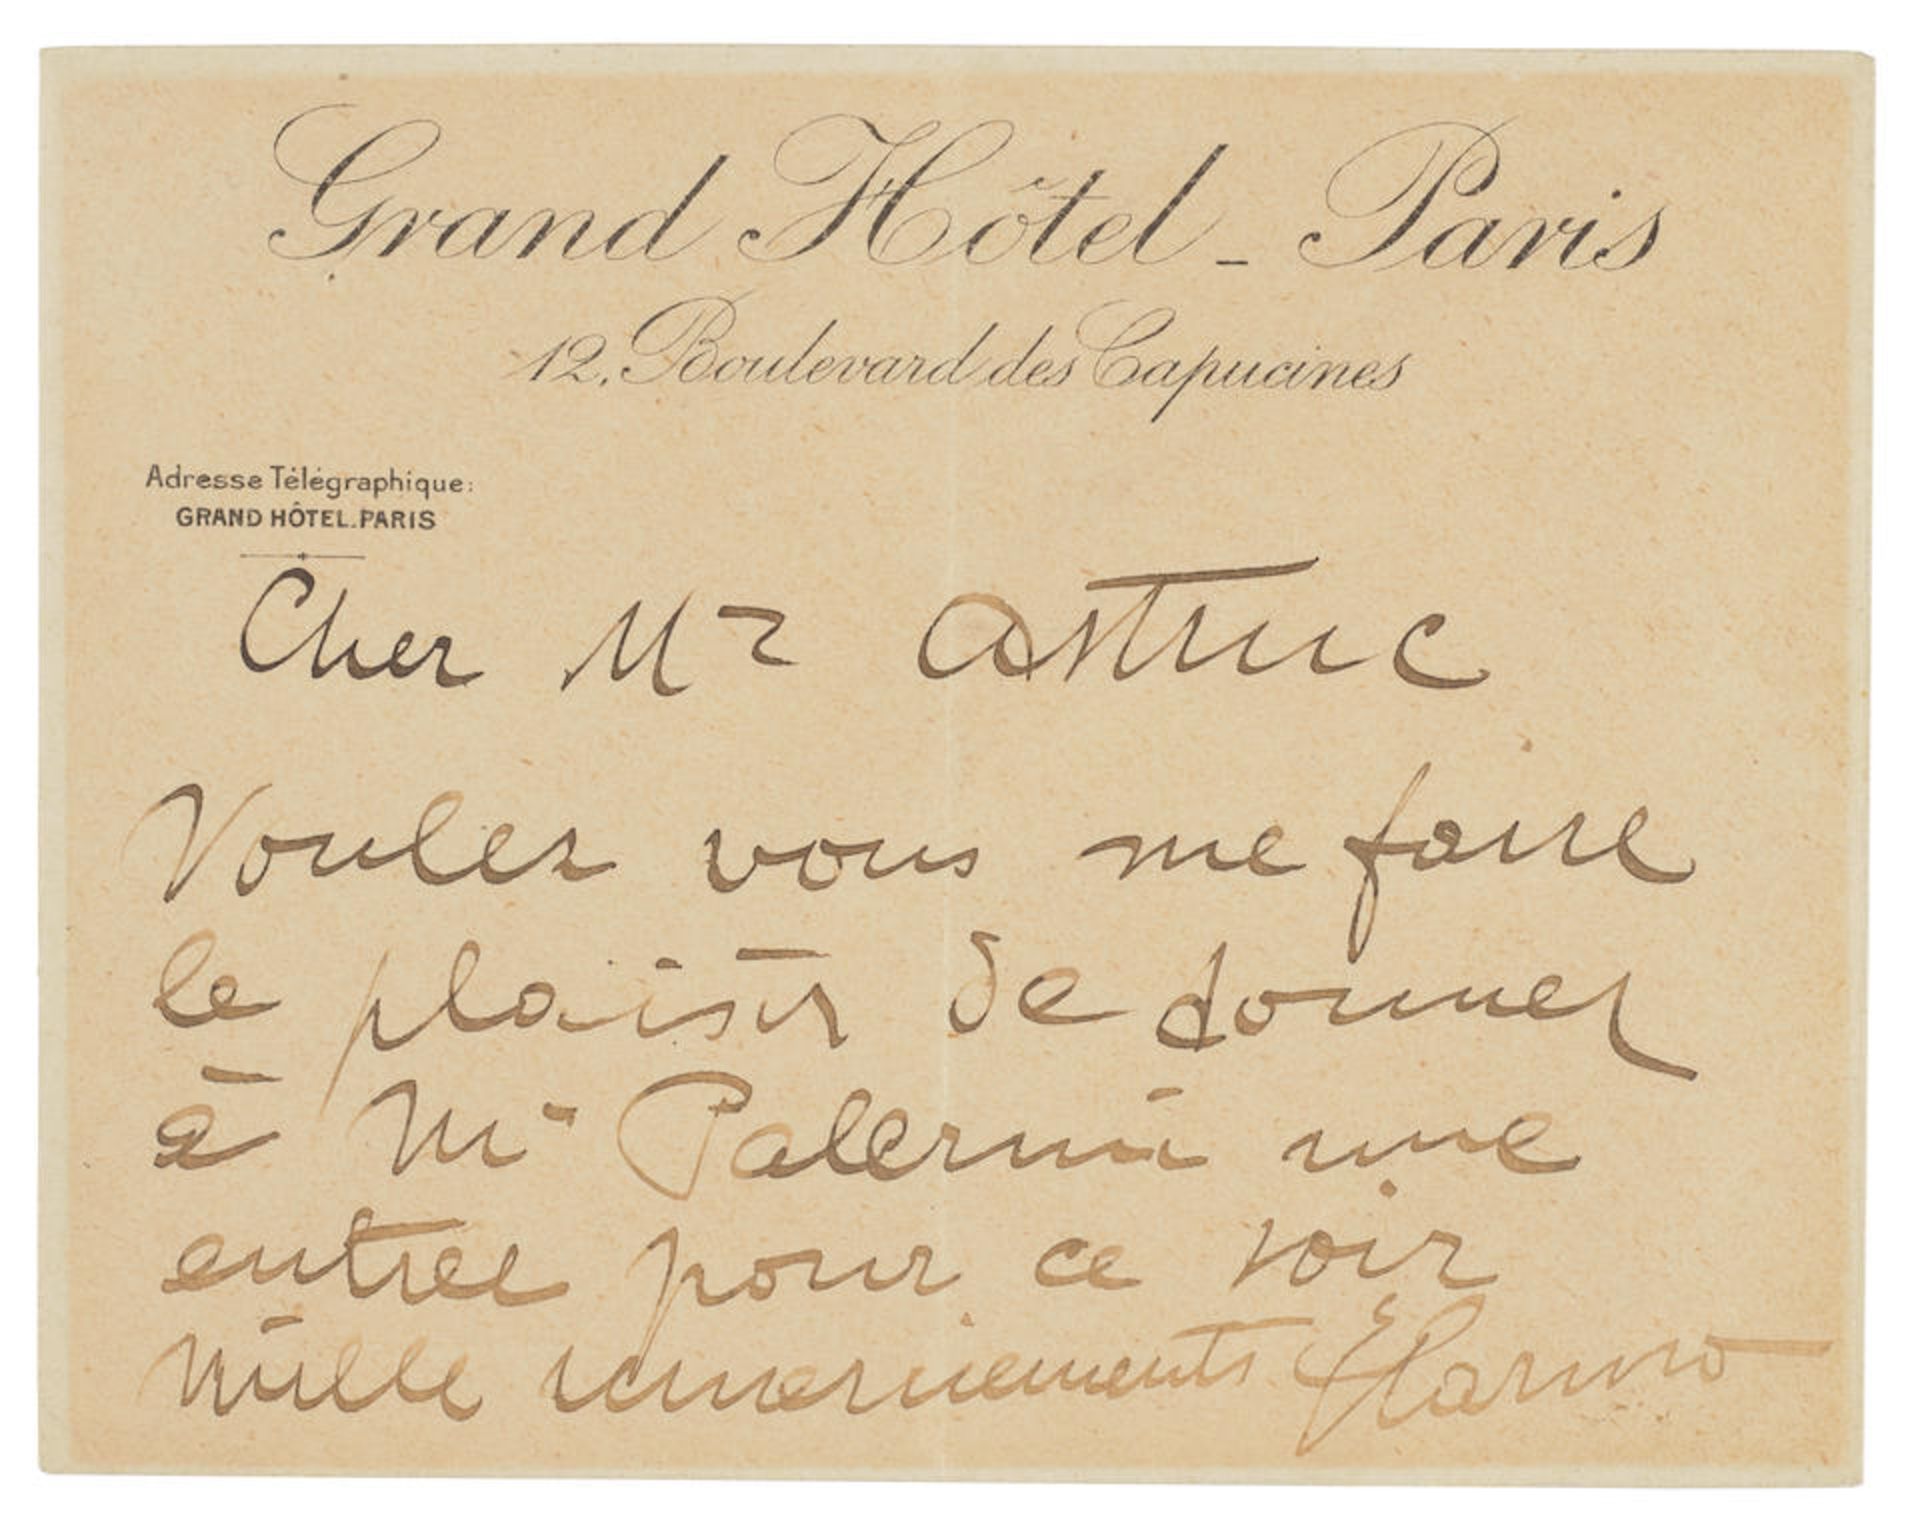 Grand Hôtel - Paris
12, Boulevard des Capucines
Adresse Télégraphique:
GRAND HÔTEL.PARIS
Cher Mr Astruc
Voulez vous me faire
le plaisir de donner
à Mr Palermi une
entree pour ce soir
Mille remerciements ECaruso